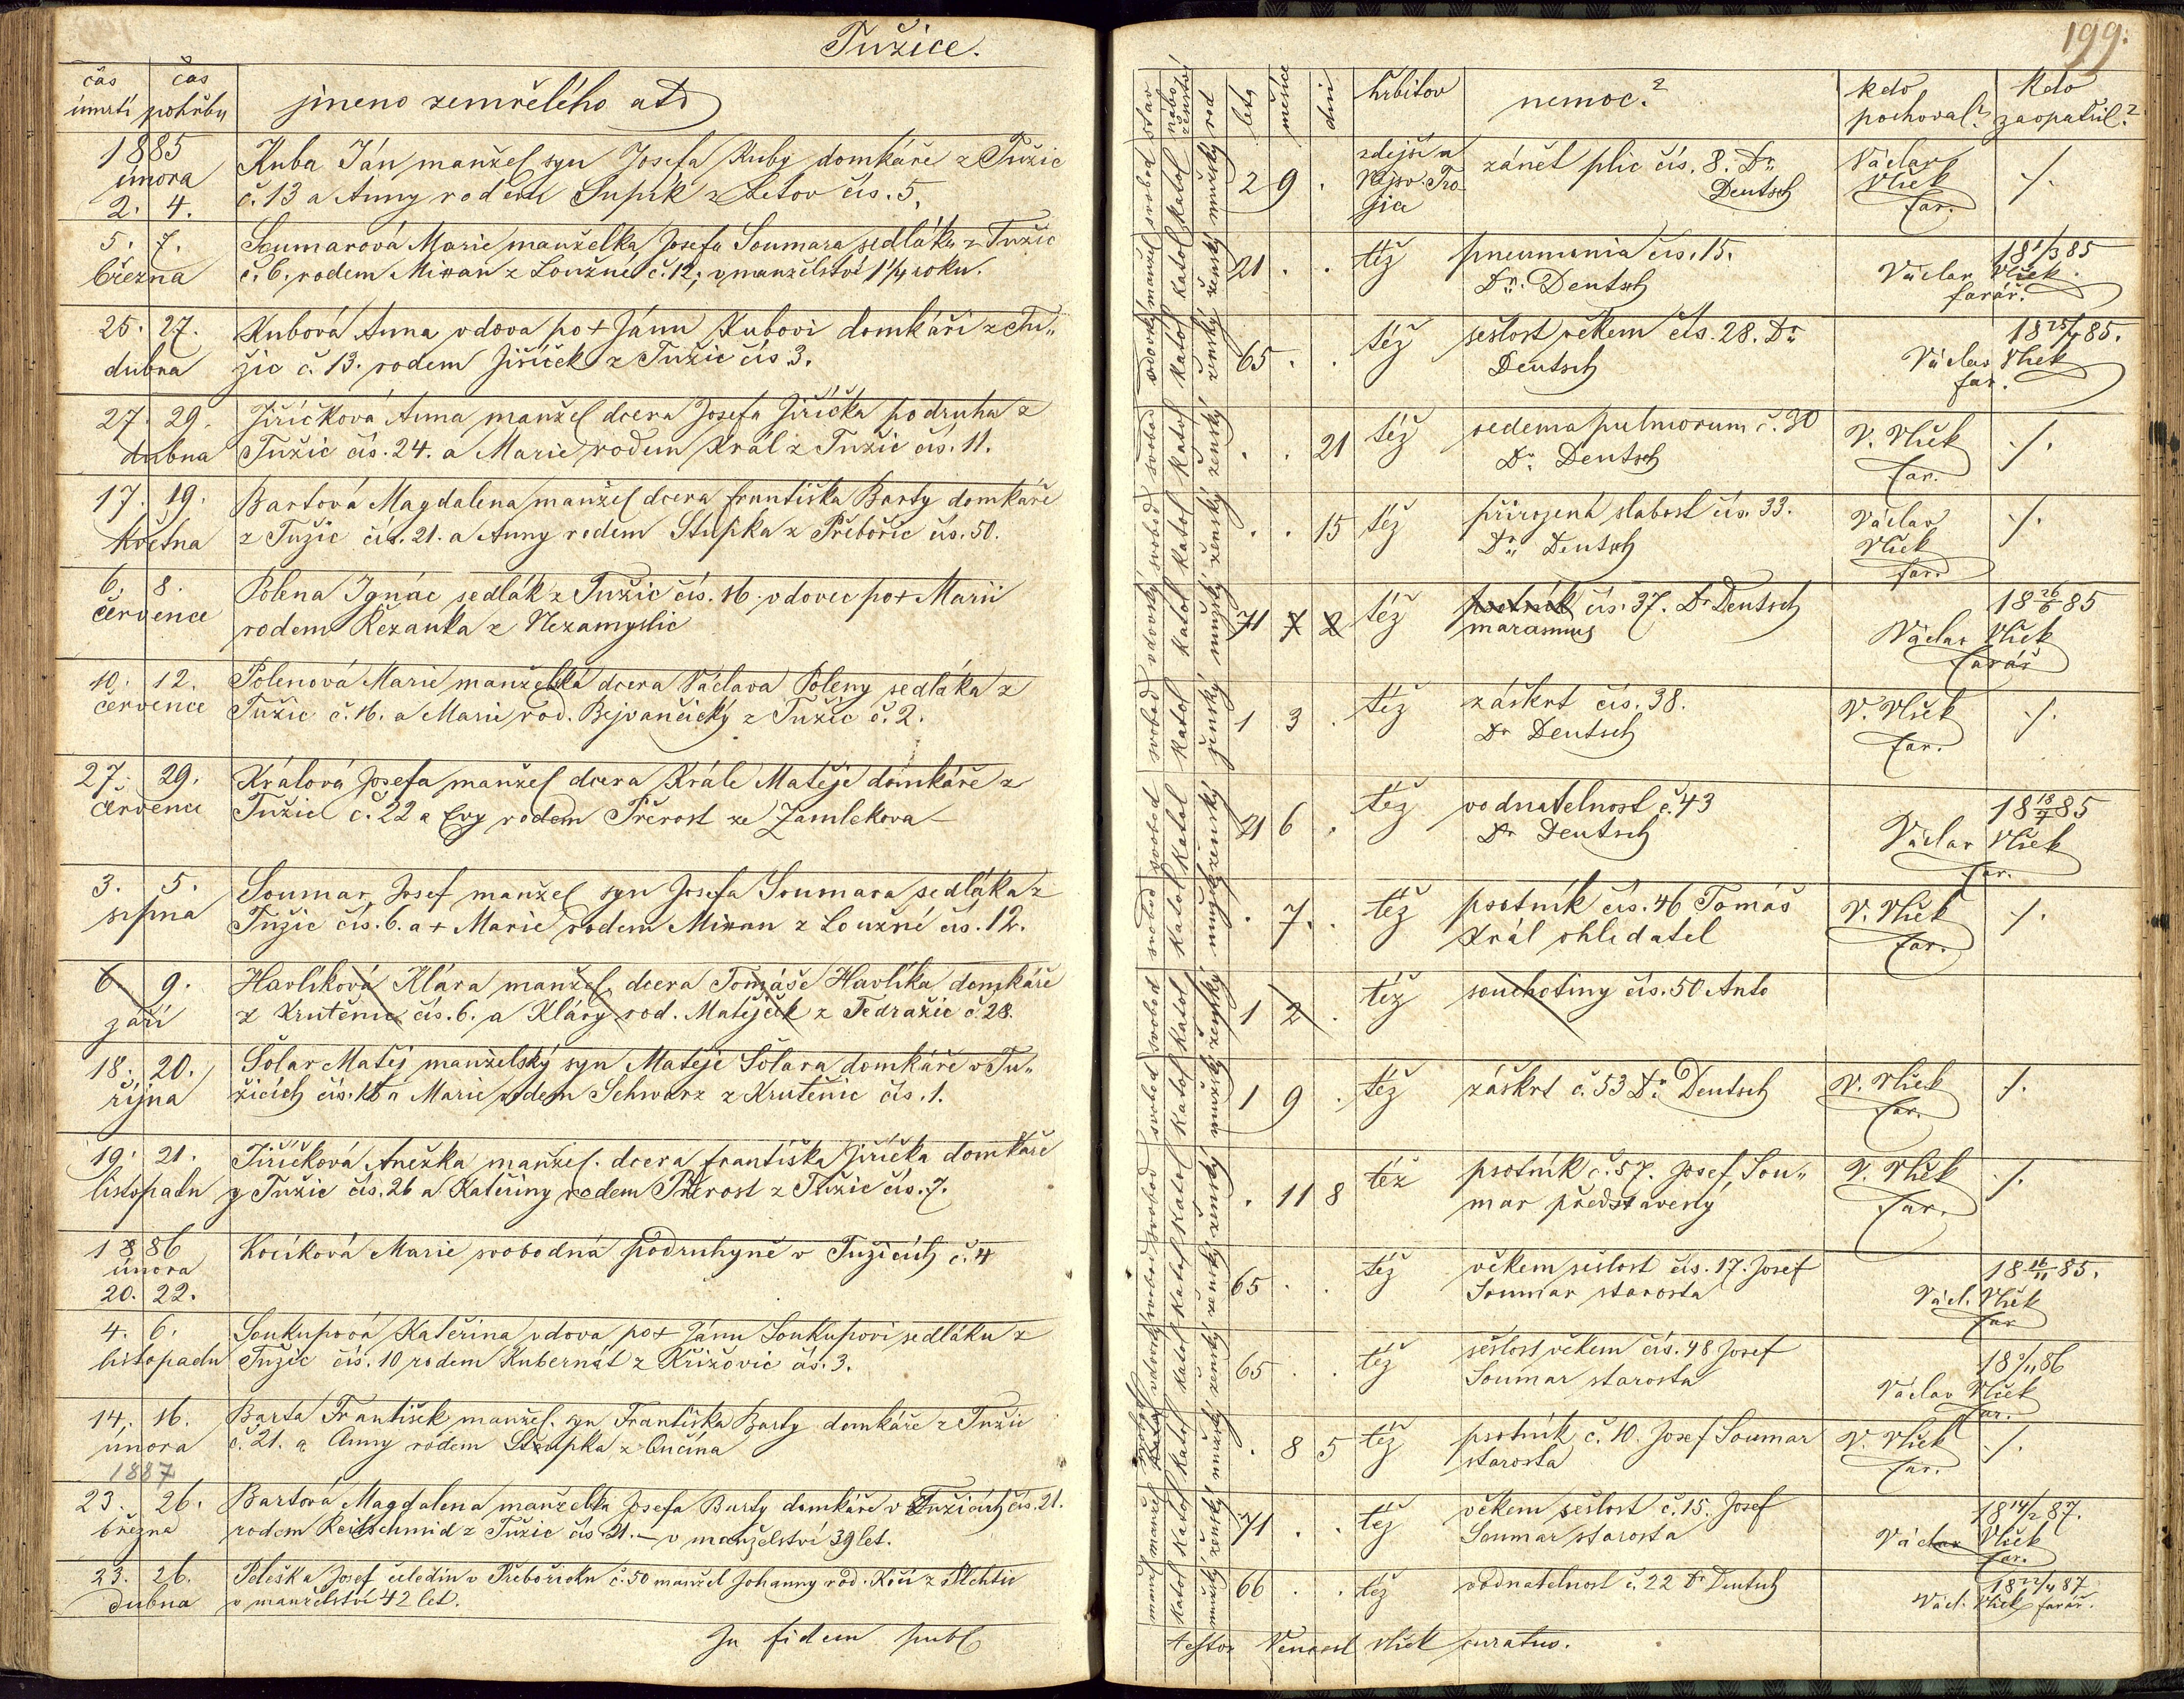 Tužice.
čas úmrtí
čas pohřbu
jmeno zemřelého atd
1885
února
2. 4.
Kuba Ján manžel syn Josefa Kuby domkáře z Tužic
č. 13 a Anny rodem Supík z Letov čís. 5.
5. 7.
března
Soumarová Marie manželka Josefa Soumara sedláka z Tužic
č. 6. rodem Mixan z Loužné č. 12, v manželství 1 1/4 roku.
25. 27.
dubna
Kubová Anna vdova po + Jánu Kubovi domkáři z Tu„
žic č. 13. rodem Jiříček z Tužic čís 3.
27. 29.
dubna
Jiříčková Anna manžel dcera Josefa Jiříčka podruha z
Tužic čís. 24. a Marie rodem Král z Tužic čís. 11.
17. 19.
května
Bartová Magdalena manžel dcera Františka Barty domkáře
z Tužic čís. 21. a Anny rodem Stupka z Přebořic čís. 50.
6. 8.
července
Polena Ignác sedlák z Tužic čís. 16. vdovec po + Marii
rodem Řezanka z Nezamyslic
10. 12.
července
Polenová Marie manželská dcera Václava Poleny sedláka z
Tužic č. 16. a Marie rod. Bejvančický z Tužic č. 2.
27. 29.
červenci
Králová Josefa manžel dcera Krále Matěje domkáře z
Tužic č. 22 a Evy rodem Přerost ze Zamlekova
3. 5.
srpna
Soumar Josef manžel syn Josefa Soumara sedláka z
Tužic čís. 6. a + Marie rodem Mixan z Loužné čís. 12.
6 9.
září
Havlíková Klára manžel. dcera Tomáše Havlíka domkáře
z Krutěnic čís. 6. a Kláry rod. Matějček z Tedražic č. 28.
18. 20.
října
Šolar Matěj manželský syn Matěje Šolara domkáře v Tu„
žicích čís. 16 a Marie rodem Schwarz z Krutěnic čís. 1.
19. 21.
listopadu
Jiříčková Anežka manžel. dcera Františka Jiříčka domkáře
z Tužic čís. 26 a Kateřiny rodem Přerost z Tužic čís. 7.
1886
února
20. 22.
Kocíková Marie svobodná podruhyně v Tužicích č. 4
4. 6.
listopadu
Soukupová Kateřina vdova po + Jánu Soukupovi sedláku z
Tužic čís. 10 rodem Kubernát z Křižovic čís. 3.
14. 16.
února
1887
Barta František manžel. syn Františka Barty domkáře z Tužic
č. 21. a Anny rodem Stupka z Ončína
23. 26.
března
Bartová Magdalena manželka Josefa Barty domkáře v Tužicích čís. 21.
rodem Reitschmid z Tužic čís. 21. — v manželství 39 let.
23. 26.
dubna
Peleška Josef čeledín v Přebořicku č. 50 manžel Johanny rod. Kočí z Plichtic
v manželství 42 let.
In fidem publ
199.
stav
nábo ženství
rod
léta
měsíce
dní
hřbitov
nemoc?
kdo pochoval?
kdo zaopatřil?
svobod katol mužský 2 9 .
zdejší u
Nejsv. Tro
jice
zánět plic čís. 8. Dr.
Deutsch
Václav
Vlček
far.
./.
manžel katol ženský 21 . .
též
pneumonia čís. 15.
Dr. Deutsch
18 1/3 85
Václav Vlček
farář.
vdovský katol ženský 65 . .
též
sešlost věkem čís. 28. Dr.
Deutsch
18 25/4 85.
Václav Vlček
far.
svobod katol ženský . . 21
též
oedema pulmorum č. 30
Dr. Deutsch
V. Vlček
far.
./.
svobod katol ženský . . 15
též
přirozená slabost čís. 33.
Dr. Deutsch
Václav
Vlček
far.
./.
vdovský katol mužský 71 7 2
též
psotník čís. 37. Dr Deutsch
marasmus
18 26/6 85
Václav Vlček
farář
svobod katol ženský 1 3 .
též
záškrt čís. 38.
Dr Deutsch
V. Vlček
far.
./.
svobod katol ženský 21 6 .
též
vodnatelnost č. 43
Dr Deutsch
18 18/7 85
Václav Vlček
far.
svobod katol mužský . 7. .
též
psotník čís. 46 Tomáš
Král ohledatel
V. Vlček
far.
./.
svobod katol ženský 1 2 .
též
souchotiny čís. 50 Anto
svobod katol mužský 1 9 .
též
záškrt č. 53 Dr. Deutsch
V. Vlček
far.
./.
svobod katol ženský . 11 8
též
psotník č. 57. Josef Sou„
mar představený
V. Vlček
far.
./.
svobod katol ženský 65 . .
též
věkem sešlost čís. 17. Josef
Soumar starosta
18 16/11 85.
Václ. Vlček
far
vdovský katol ženský 65 . .
též
sešlost věkem čís. 48 Josef
Soumar starosta
18 3/11 86
Václav Vlček
far.
svobod katol mužský . 8 5
též
psotník č. 10. Josef Soumar
starosta
V. Vlček
far.
./.
manžel katol ženský 71 . .
též
věkem sešlost č. 15. Josef
Soumar starosta
18 14/2 87.
Václav Vlček
far.
manžel katol mužský 66 . .
též
vodnatelnost č. 22 Dr Deutsch
18 22/4 87
Václ. Vlček farář.
testor Vencesl Vlček curatus.